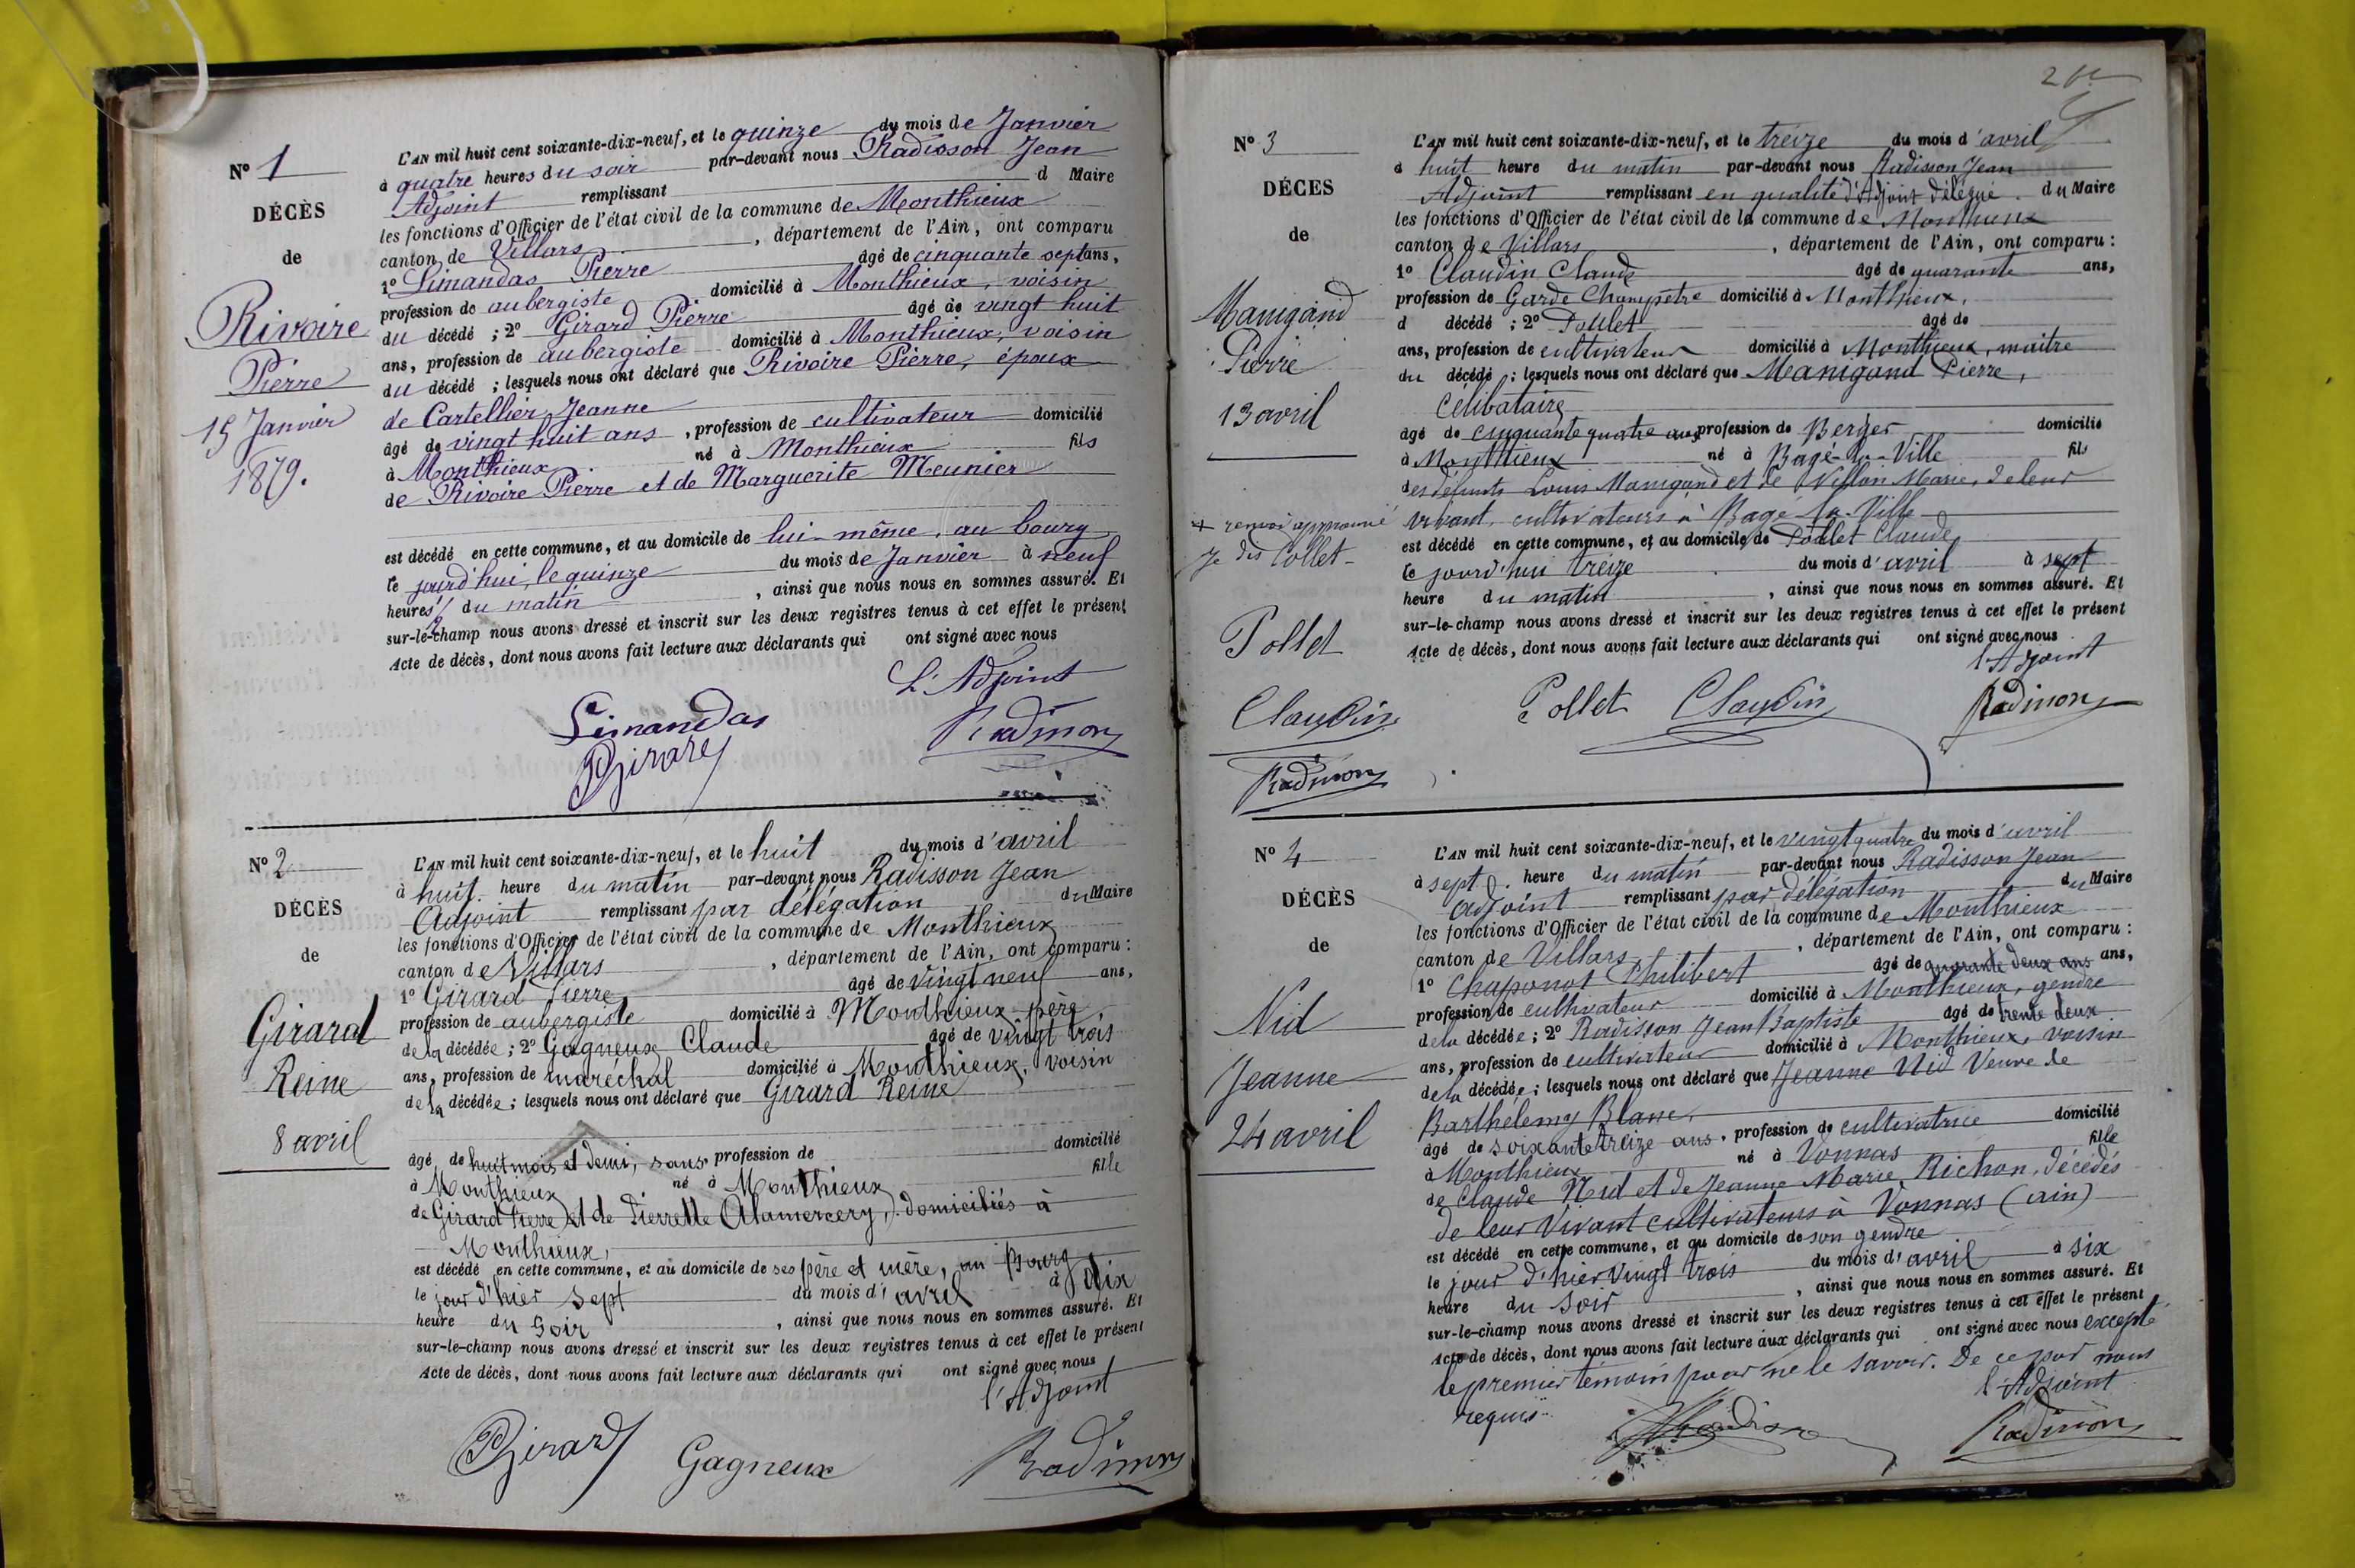 N° 1
DÉCÈS
de
Rivoire
Pierre
15 Janvier
1879.
L'AN mil huit cent soixante-dix-neuf, et le quinze du mois de Janvier
à quatre heures du soir par-devant nous Radisson Jean
Adjoint remplissant d Maire
les fonctions d'Officier de l'état civil de la commune de Monthieux
canton de Villars, département de l'Ain, ont comparu
1° Limandas Pierre âgé de cinquante sept ans,
profession de aubergiste domicilié à Monthieux, voisin
du décédé ; 2° Girard Pierre âgé de vingt huit
ans, profession de aubergiste domicilié à Monthieux, voisin
du décédé ; lesquels nous ont déclaré que Rivoire Pierre, époux
de Cartellier Jeanne
âgé de vingt huit ans, profession de cultivateur domicilié
à Monthieux né à Monthieux fils
de Rivoire Pierre et de Marguerite Meunier
est décédé en cette commune, et au domicile de lui-même, au bourg
le jourd'hui, le quinze du mois de Janvier à neuf
heures 1/2 du matin, ainsi que nous nous en sommes assuré. Et
sur-le-champ nous avons dressé et inscrit sur les deux registres tenus à cet effet le présent
Acte de décès, dont nous avons fait lecture aux déclarants qui ont signé avec nous
L'Adjoint
Limandas
Girard
Radisson
N° 2
DÉCÈS
de
Girard
Reine
8 avril
L'AN mil huit cent soixante-dix-neuf, et le huit du mois d'avril
à huit heure du matin par-devant nous Radisson Jean
Adjoint remplissant par délégation du Maire
les fonctions d'Officier de l'état civil de la commune de Monthieux
canton de Villars, département de l'Ain, ont comparu :
1° Girard Pierre âgé de vingt neuf ans,
profession de aubergiste domicilié à Monthieux, père
de la décédée ; 2° Gagneux Claude âgé de vingt trois
ans, profession de maréchal domicilié à Monthieux, voisin
de la décédée ; lesquels nous ont déclaré que Girard Reine
âgé de huit mois et demi, sans profession de domicilié
à Monthieux né à Monthieux fille
de Girard Pierre et de Pierrette Alamercery, domiciliés à
Monthieux,
est décédé en cette commune, et au domicile de ses père et mère, au Bourg
le jour d'hier sept du mois d'avril à dix
heure du soir, ainsi que nous nous en sommes assuré. Et
sur-le-champ nous avons dressé et inscrit sur les deux registres tenus à cet effet le présent
Acte de décès, dont nous avons fait lecture aux déclarants qui ont signé avec nous
l'Adjoint
Girard Gagneux Radisson
N° 3
DÉCES
de
Manigand
Pierre
13 avril
+ renvoi approuvé
je dis Pollet
Pollet
Claudin
Radisson
L'AN mil huit cent soixante-dix-neuf, et le treize du mois d'avril
à huit heure du matin par-devant nous Radisson Jean
Adjoint remplissant en qualité d'Adjoint délégué du Maire
les fonctions d'Officier de l'état civil de la commune de Monthieux
canton de Villars, département de l'Ain, ont comparu :
1° Claudin Claude âgé de quarante ans,
profession de Garde Champêtre domicilié à Monthieux,
d décédé ; 2° Poulet âgé de
ans, profession de cultivateur domicilié à Monthieux, maître
du décédé ; lesquels nous ont déclaré que Manigand Pierre,
Célibataire
âgé de cinquante quatre ans profession de Berger domicilié
à Monthieux né à Bagé-la-Ville fils
des défunts Louis Manigand et de Villon Marie, de leur
vivant, cultivateurs à Bagé-la-Ville
est décédé en cette commune, et au domicile de Poulet Claude
le jourd'hui treize du mois d'avril à sept
heure du matin, ainsi que nous nous en sommes assuré. Et
sur-le-champ nous avons dressé et inscrit sur les deux registres tenus à cet effet le présent
Acte de décès, dont nous avons fait lecture aux déclarants qui ont signé avec nous
l'Adjoint
Pollet Claudin Radisson
N° 4
DÉCÈS
de
Nid
Jeanne
24 avril
L'AN mil huit cent soixante-dix-neuf, et le vingt quatre du mois d'avril
à sept heure du matin par-devant nous Radisson Jean
adjoint remplissant par délégation du Maire
les fonctions d'Officier de l'état civil de la commune de Monthieux
canton de Villars, département de l'Ain, ont comparu :
1° Chaponot Philibert âgé de quarante deux ans ans,
profession de cultivateur domicilié à Monthieux, gendre
de la décédée ; 2° Radisson Jean Baptiste âgé de trente deux
ans, profession de cultivateur domicilié à Monthieux, voisin
de la décédée ; lesquels nous ont déclaré que Jeanne Nid Veuve de
Barthélemy Blanc,
âgé de soixante treize ans, profession de cultivatrice domicilié
à Monthieux né à Vonnas fille
de Claude Nid et de Jeanne Marie Richon, décédés
de leur vivant cultivateurs à Vonnas (ain)
est décédé en cette commune, et au domicile de son gendre
le jour d'hier vingt trois du mois d'avril à six
heure du soir, ainsi que nous nous en sommes assuré. Et
sur-le-champ nous avons dressé et inscrit sur les deux registres tenus à cet effet le présent
Acte de décès, dont nous avons fait lecture aux déclarants qui ont signé avec nous excepté
le premier témoin pour ne le savoir. De ce par nous
requis
l'Adjoint
Radisson